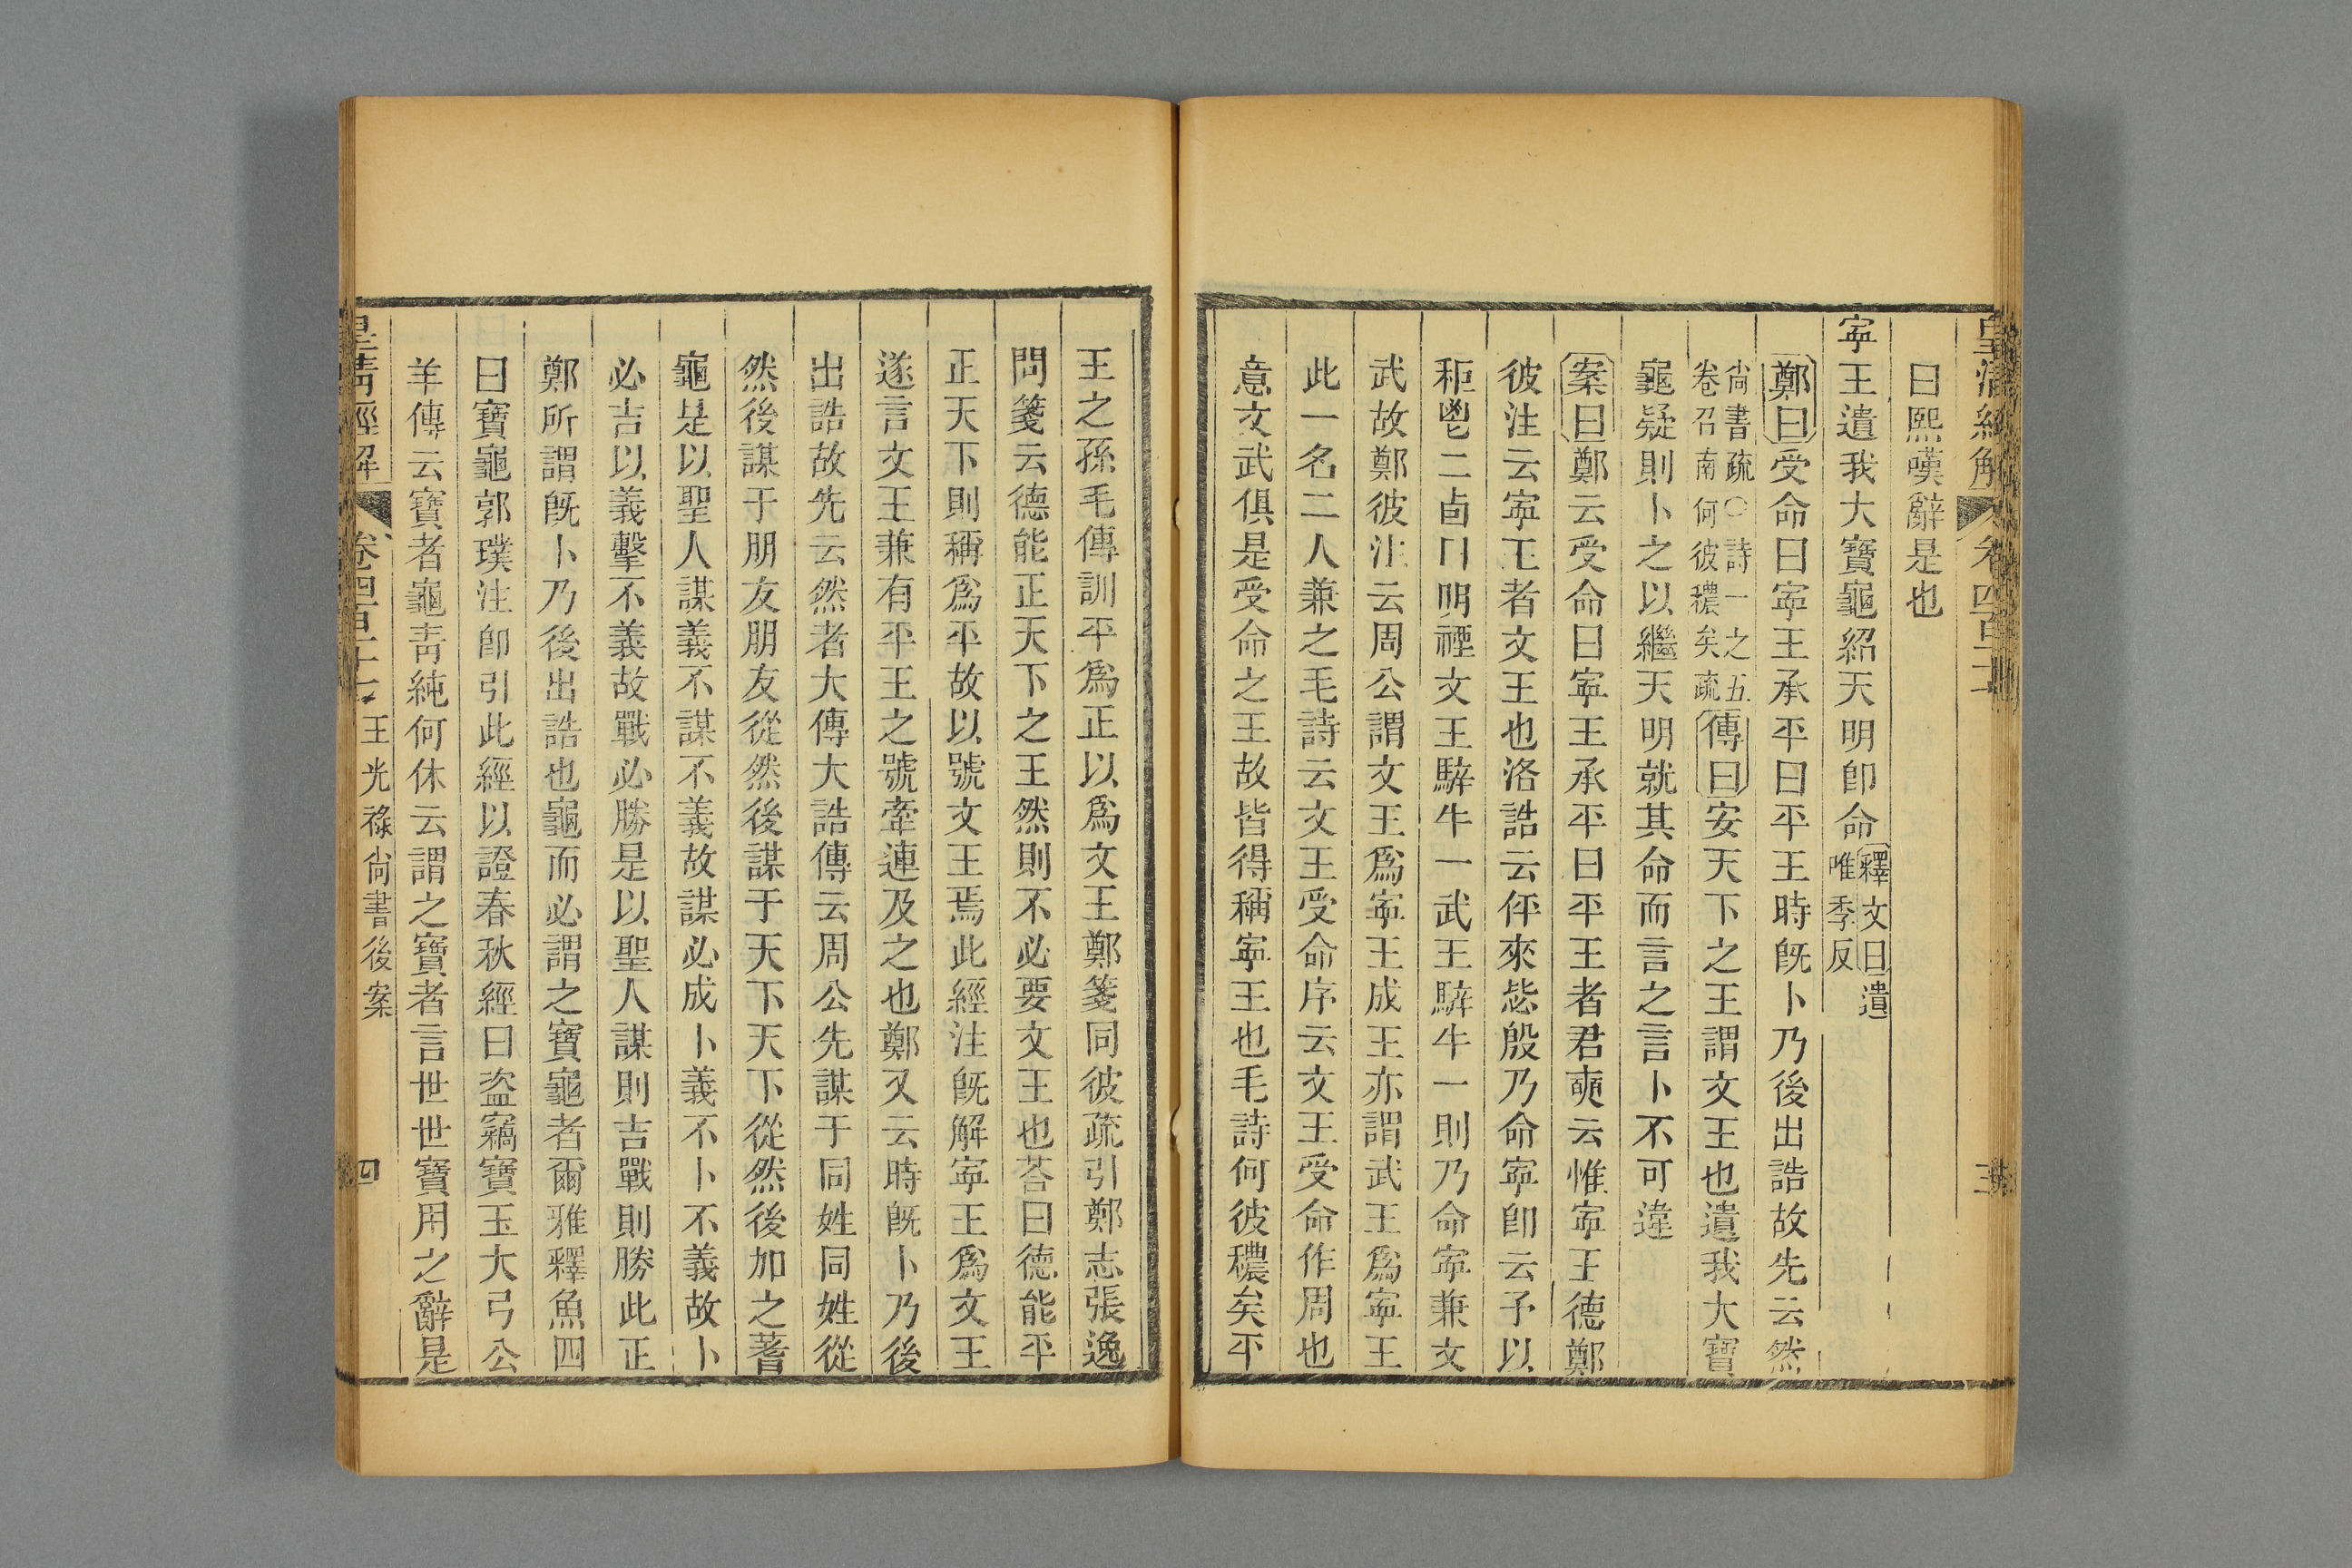 曰熙嘆辭是也
寜王遺我大寶龜紹天明卽命釋文曰遺唯季反
鄭曰受命曰寜王承平曰平王時旣卜乃後出誥故先云然
尙書疏〇詩一之五卷召南何彼穠矣疏傳曰安天下之王謂文王也遺我大寶
龜疑則卜之以繼天明就其命而言之言卜不可違
案曰鄭云受命曰寜王承平曰平王者君奭云惟寜王德鄭
彼注云寜王者文王也洛誥云伻來毖殷乃命寜卽云予以
秬鬯二卣曰明禋文王騂牛一武王騂牛一則乃命寜兼文
武故鄭彼注云周公謂文王爲寜王成王亦謂武王爲寜王
此一名二人兼之毛詩云文王受命序云文王受命作周也
意文武俱是受命之王故皆得稱寜王也毛詩何彼穠矣平
王之孫毛傳訓平爲正以爲文王鄭箋同彼疏引鄭志張逸
問箋云德能正天下之王然則不必要文王也荅曰德能平
正天下則稱爲平故以號文王焉此經注旣解寜王爲文王
遂言文王兼有平王之號牽連及之也鄭又云時旣卜乃後
出誥故先云然者大傳大誥傳云周公先謀于同姓同姓從
然後謀于朋友朋友從然後謀于天下天下從然後加之蓍
龜是以聖人謀義不謀不義故謀必成卜義不卜不義故卜
必吉以義擊不義故戰必勝是以聖人謀則吉戰則勝此正
鄭所謂旣卜乃後出誥也龜而必謂之寶龜者爾雅釋魚四
曰寶龜郭璞注卽引此經以證春秋經曰盗竊寶玉大弓公
羊傳云寶者龜靑純何休云謂之寶者言世世寶用之辭是
皇淸經解 卷四百十七 王光祿尙書後案 四